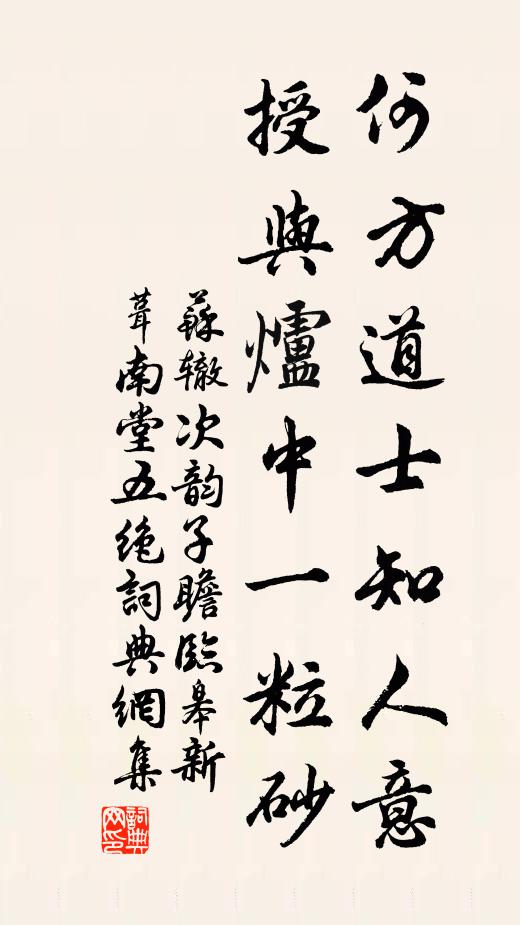 何方道士知人意
授與爐中一粒砂
蘇辙次韵子瞻臨皋新
葺南堂五绝詞典網集
詞典
网印